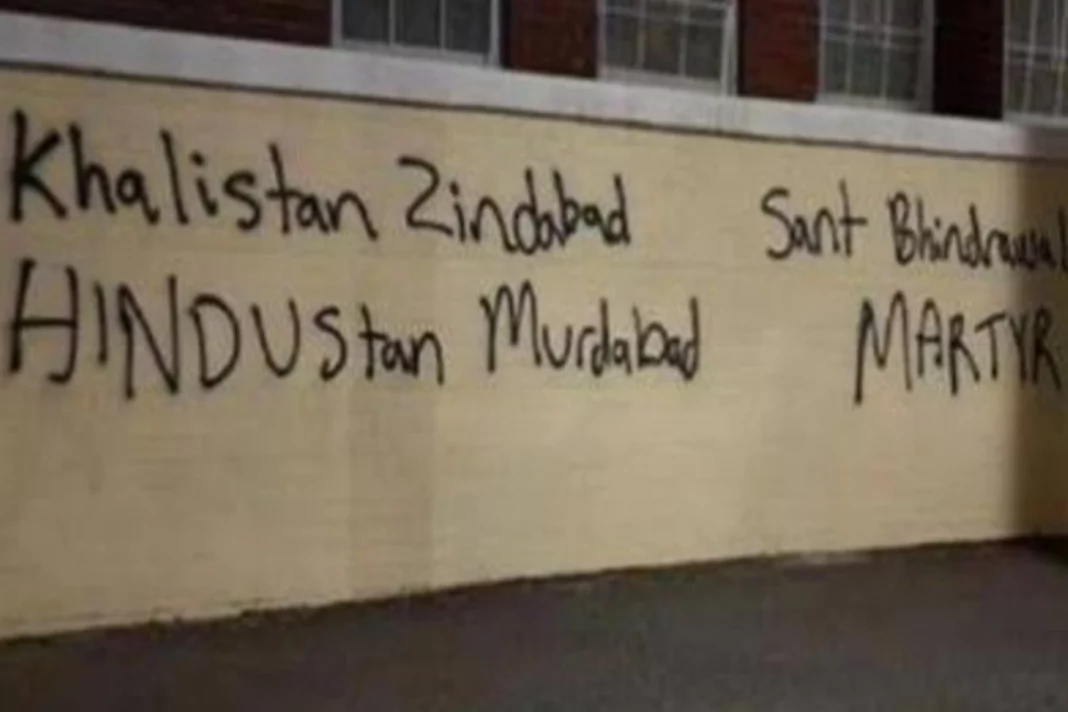 Khalistan Zindabad
HINDUStan Murdabad
Sant Bhindrawal
MARTYR